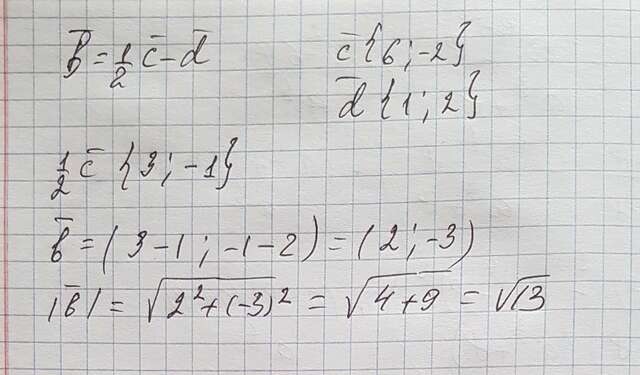 b̄ = 1/2 c̄ - d̄
c̄ {6; -2}
d̄ {1; 2}
1/2 c̄ {3; -1}
b̄ = (3-1; -1-2) = (2; -3)
|b̄| = √(2²+(-3)²) = √(4+9) = √13